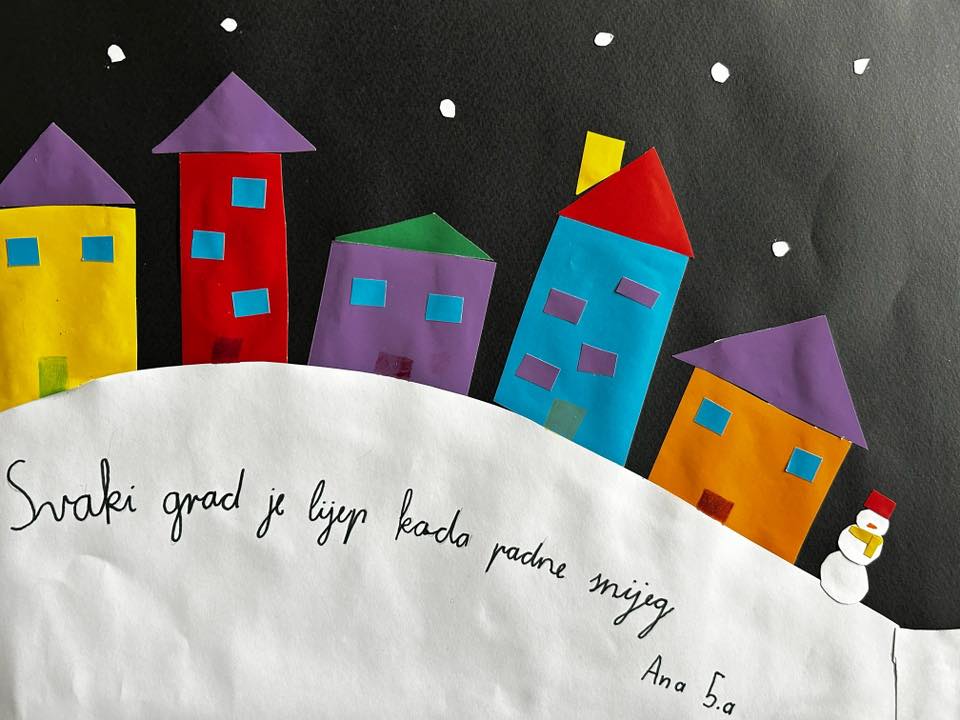 Svaki grad je lijep kada padne snijeg
Ana 5.a